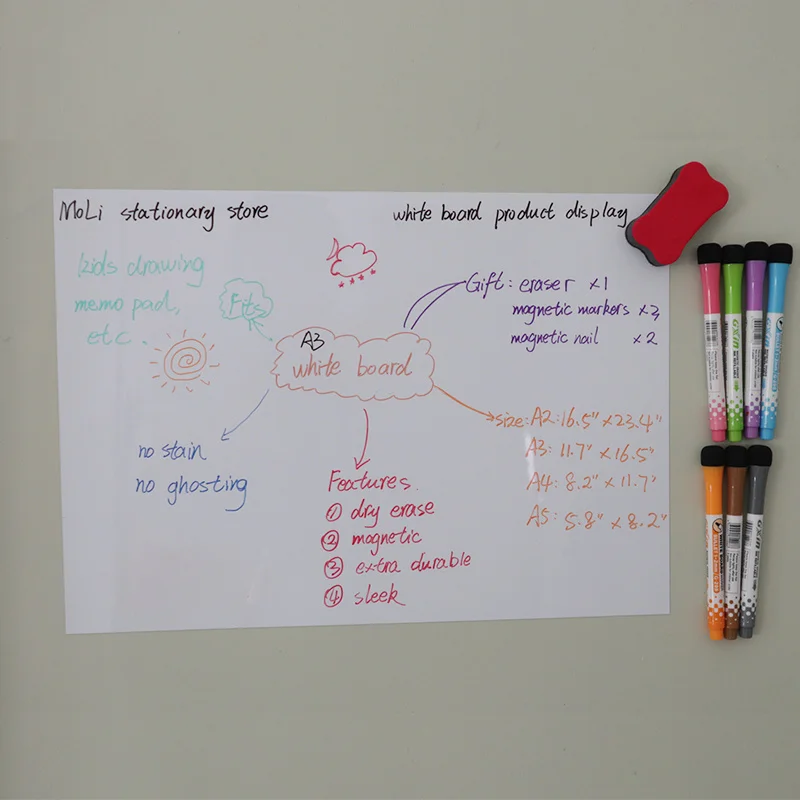 MoLi stationary store
white board product display
kids drawing
memo pad,
etc.
Fits
Gift: eraser x1
magnetic markers x3
magnetic nail x2
A3
white board
size: A2: 16.5" x 23.4"
A3: 11.7" x 16.5"
A4: 8.2" x 11.7"
A5: 5.8" x 8.2"
no stain
no ghosting
Features.
① dry erase
② magnetic
③ extra durable
④ sleek